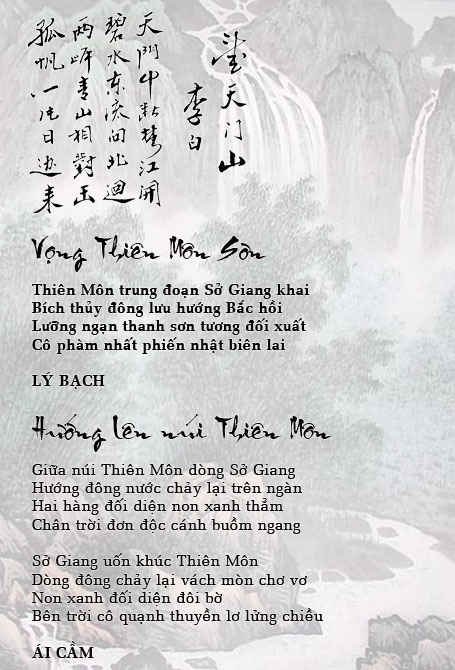 望天门山
李白
天門中断楚江開
碧水东流向北迴
两岸青山相對出
孤帆一片日边来
Vọng Thiên Môn Sơn
Thiên Môn trung đoạn Sở Giang khai
Bích thủy đông lưu hướng Bắc hồi
Lưỡng ngạn thanh sơn tương đối xuất
Cô phàm nhất phiến nhật biên lai
LÝ BẠCH
Hướng lên núi Thiên Môn
Giữa núi Thiên Môn dòng Sở Giang
Hướng đông nước chảy lại trên ngàn
Hai hàng đối diện non xanh thẳm
Chân trời đơn độc cánh buồm ngang
Sở Giang uốn khúc Thiên Môn
Dòng đông chảy lại vách mòn chơ vơ
Non xanh đối diện đôi bờ
Bên trời cô quạnh thuyền lơ lửng chiều
ÁI CẦM